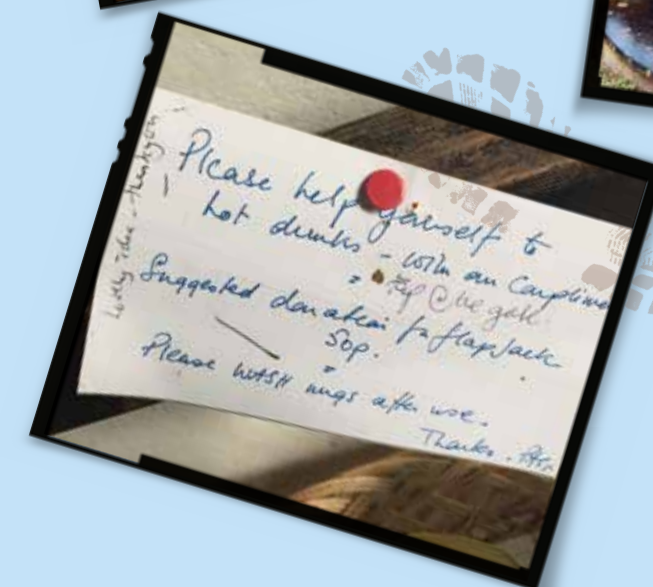 Please help yourself to
hot drinks - with our Complime
Tap @ the gate
Suggested donation for flapjack
50p.
Please WASH mugs after use.
Thanks.
Lovely idea - thankyou